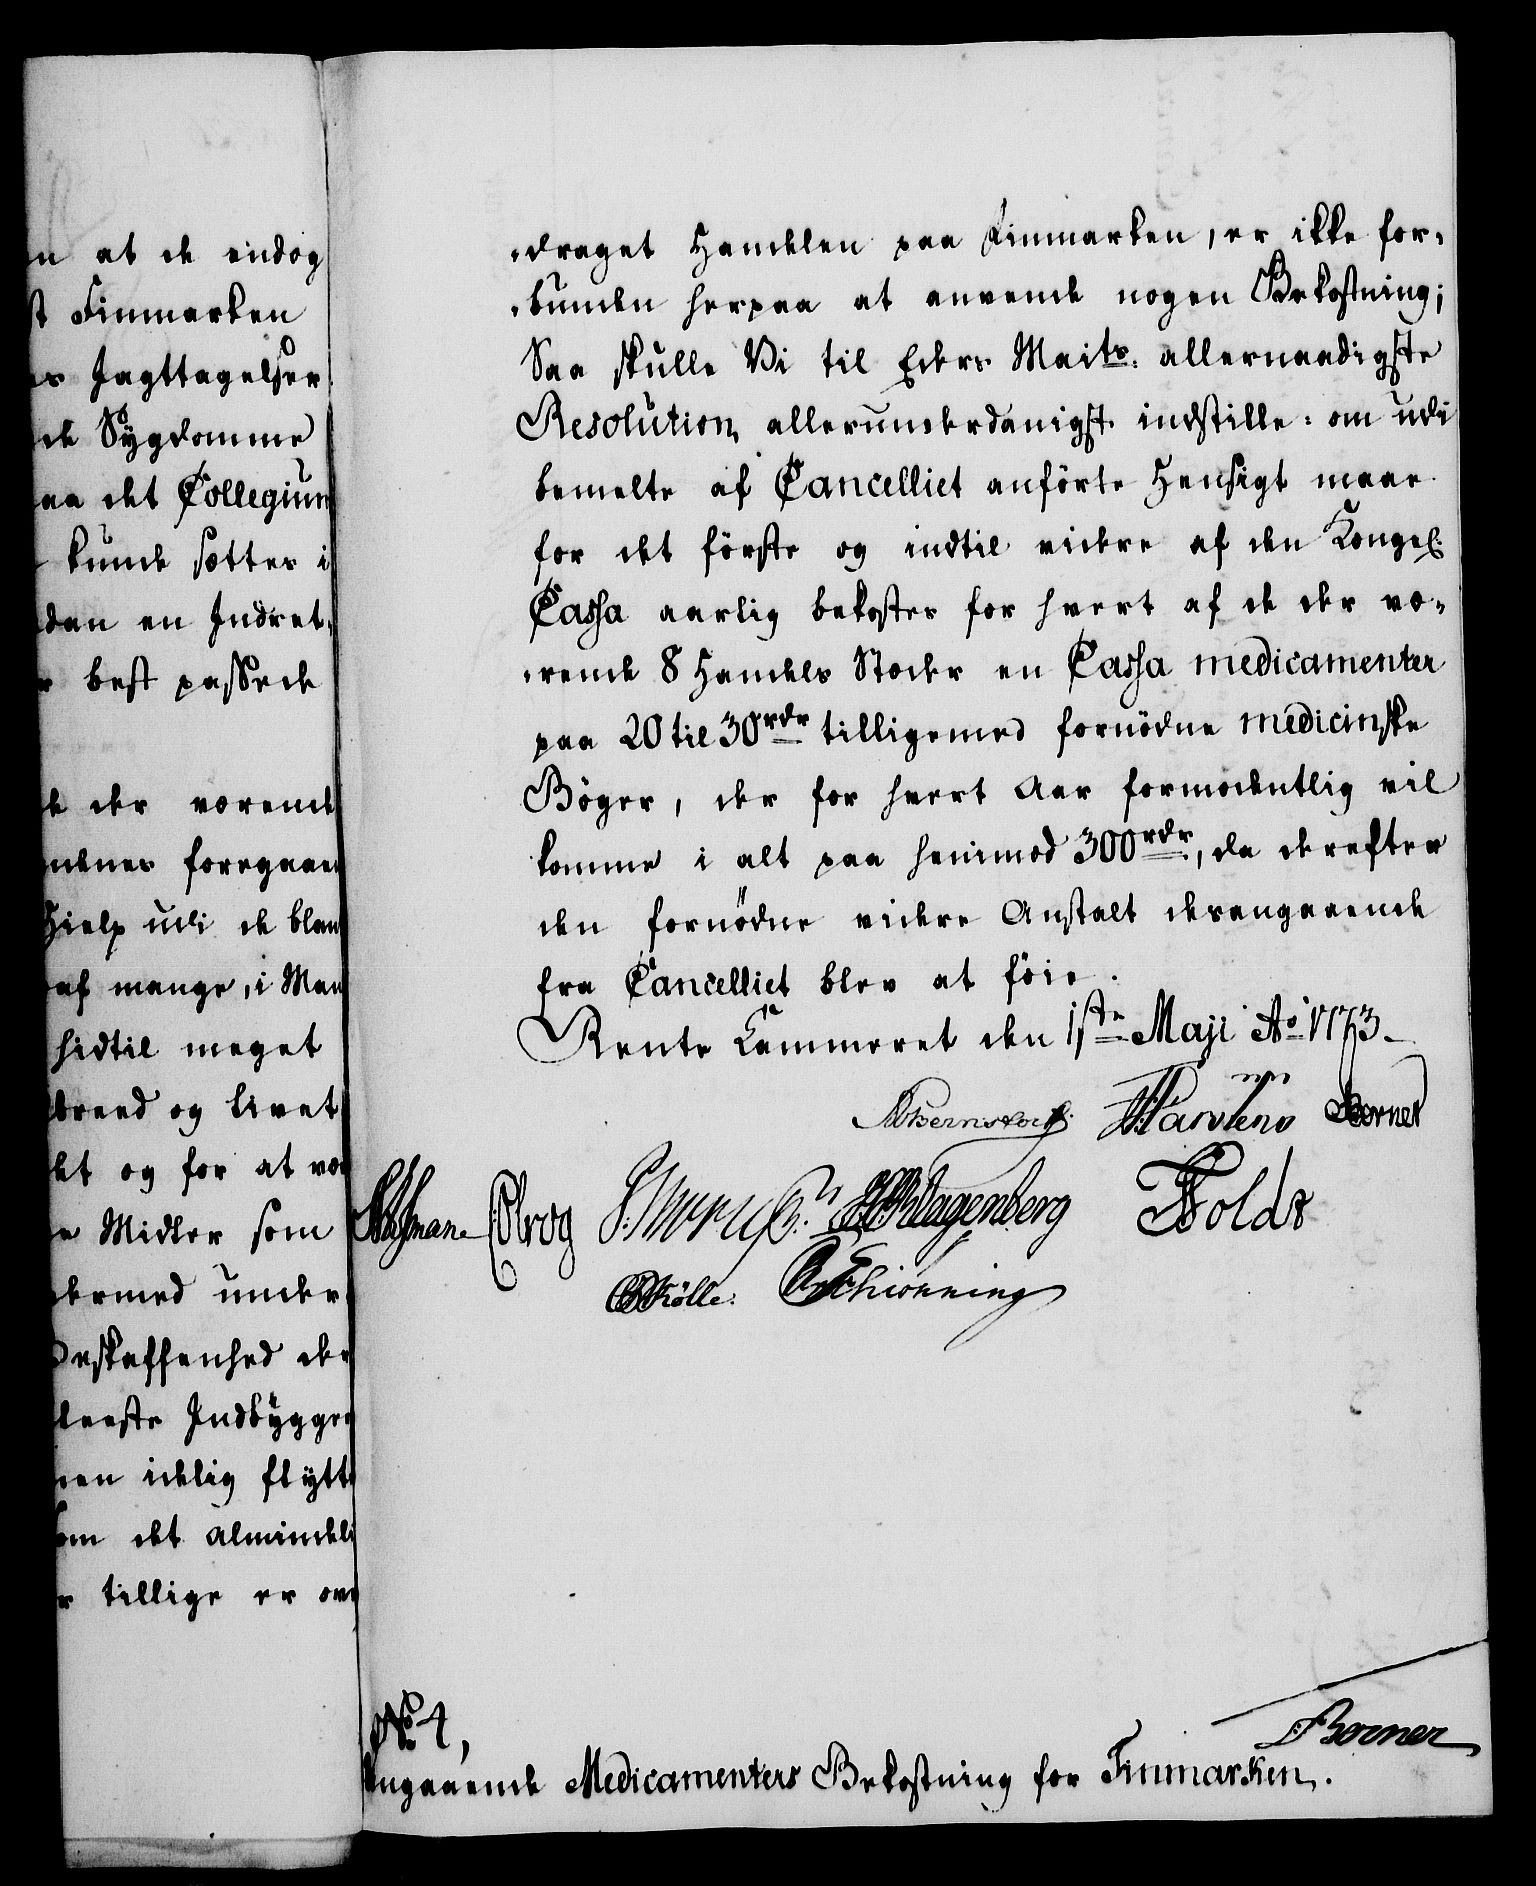 n at de endog
st Finmarken
es Jagttagelser
de Sygdomme
aa det Collegium
kunde sættes i
dan en Indret-
r best passede
de der værende
nenes foregaaen
Hielp udi de blan
af mange, i Man
hidtil meget
breed og Livet
et og for at væ
e Midler som
dermed under
Beskaffenhed de
fleeste Indbygge
en idelig flytt
om det almindeli
r tillige er ov
-draget Handelen paa Finmarken, er ikke for-
-bunden herpaa at anvende nogen Bekostning;
Saa skulle Vi til Eders Maits. allernaadigste
Resolution, allerunderdanigst indstille: om udi
bemelte af Cancelliet anförte Hensigt maae
for det förste og indtil videre af den Kongel.
Cassa aarlig bekostes for hvert af de der væ-
-rende 8 Handels Stæder en Cassa medicamenter
paa 20 til 30 rdr tilligemed fornödne medicinske
Böger, der for hvert Aar formodentlig vil
komme i alt paa henimod 300 rdr, da derefter
den fornödne videre Anstalt desangaaende
fra Cancelliet blev at föie.
Rente Cammeret den 1ste Maji Ao 1773.
Bernstorff. Carstens Borner
Olrog Klagenberg Foldz
Kölle. Schiönning
No. 4,
Borner
Angaaende Medicamenters Bekostning for Finmarken.